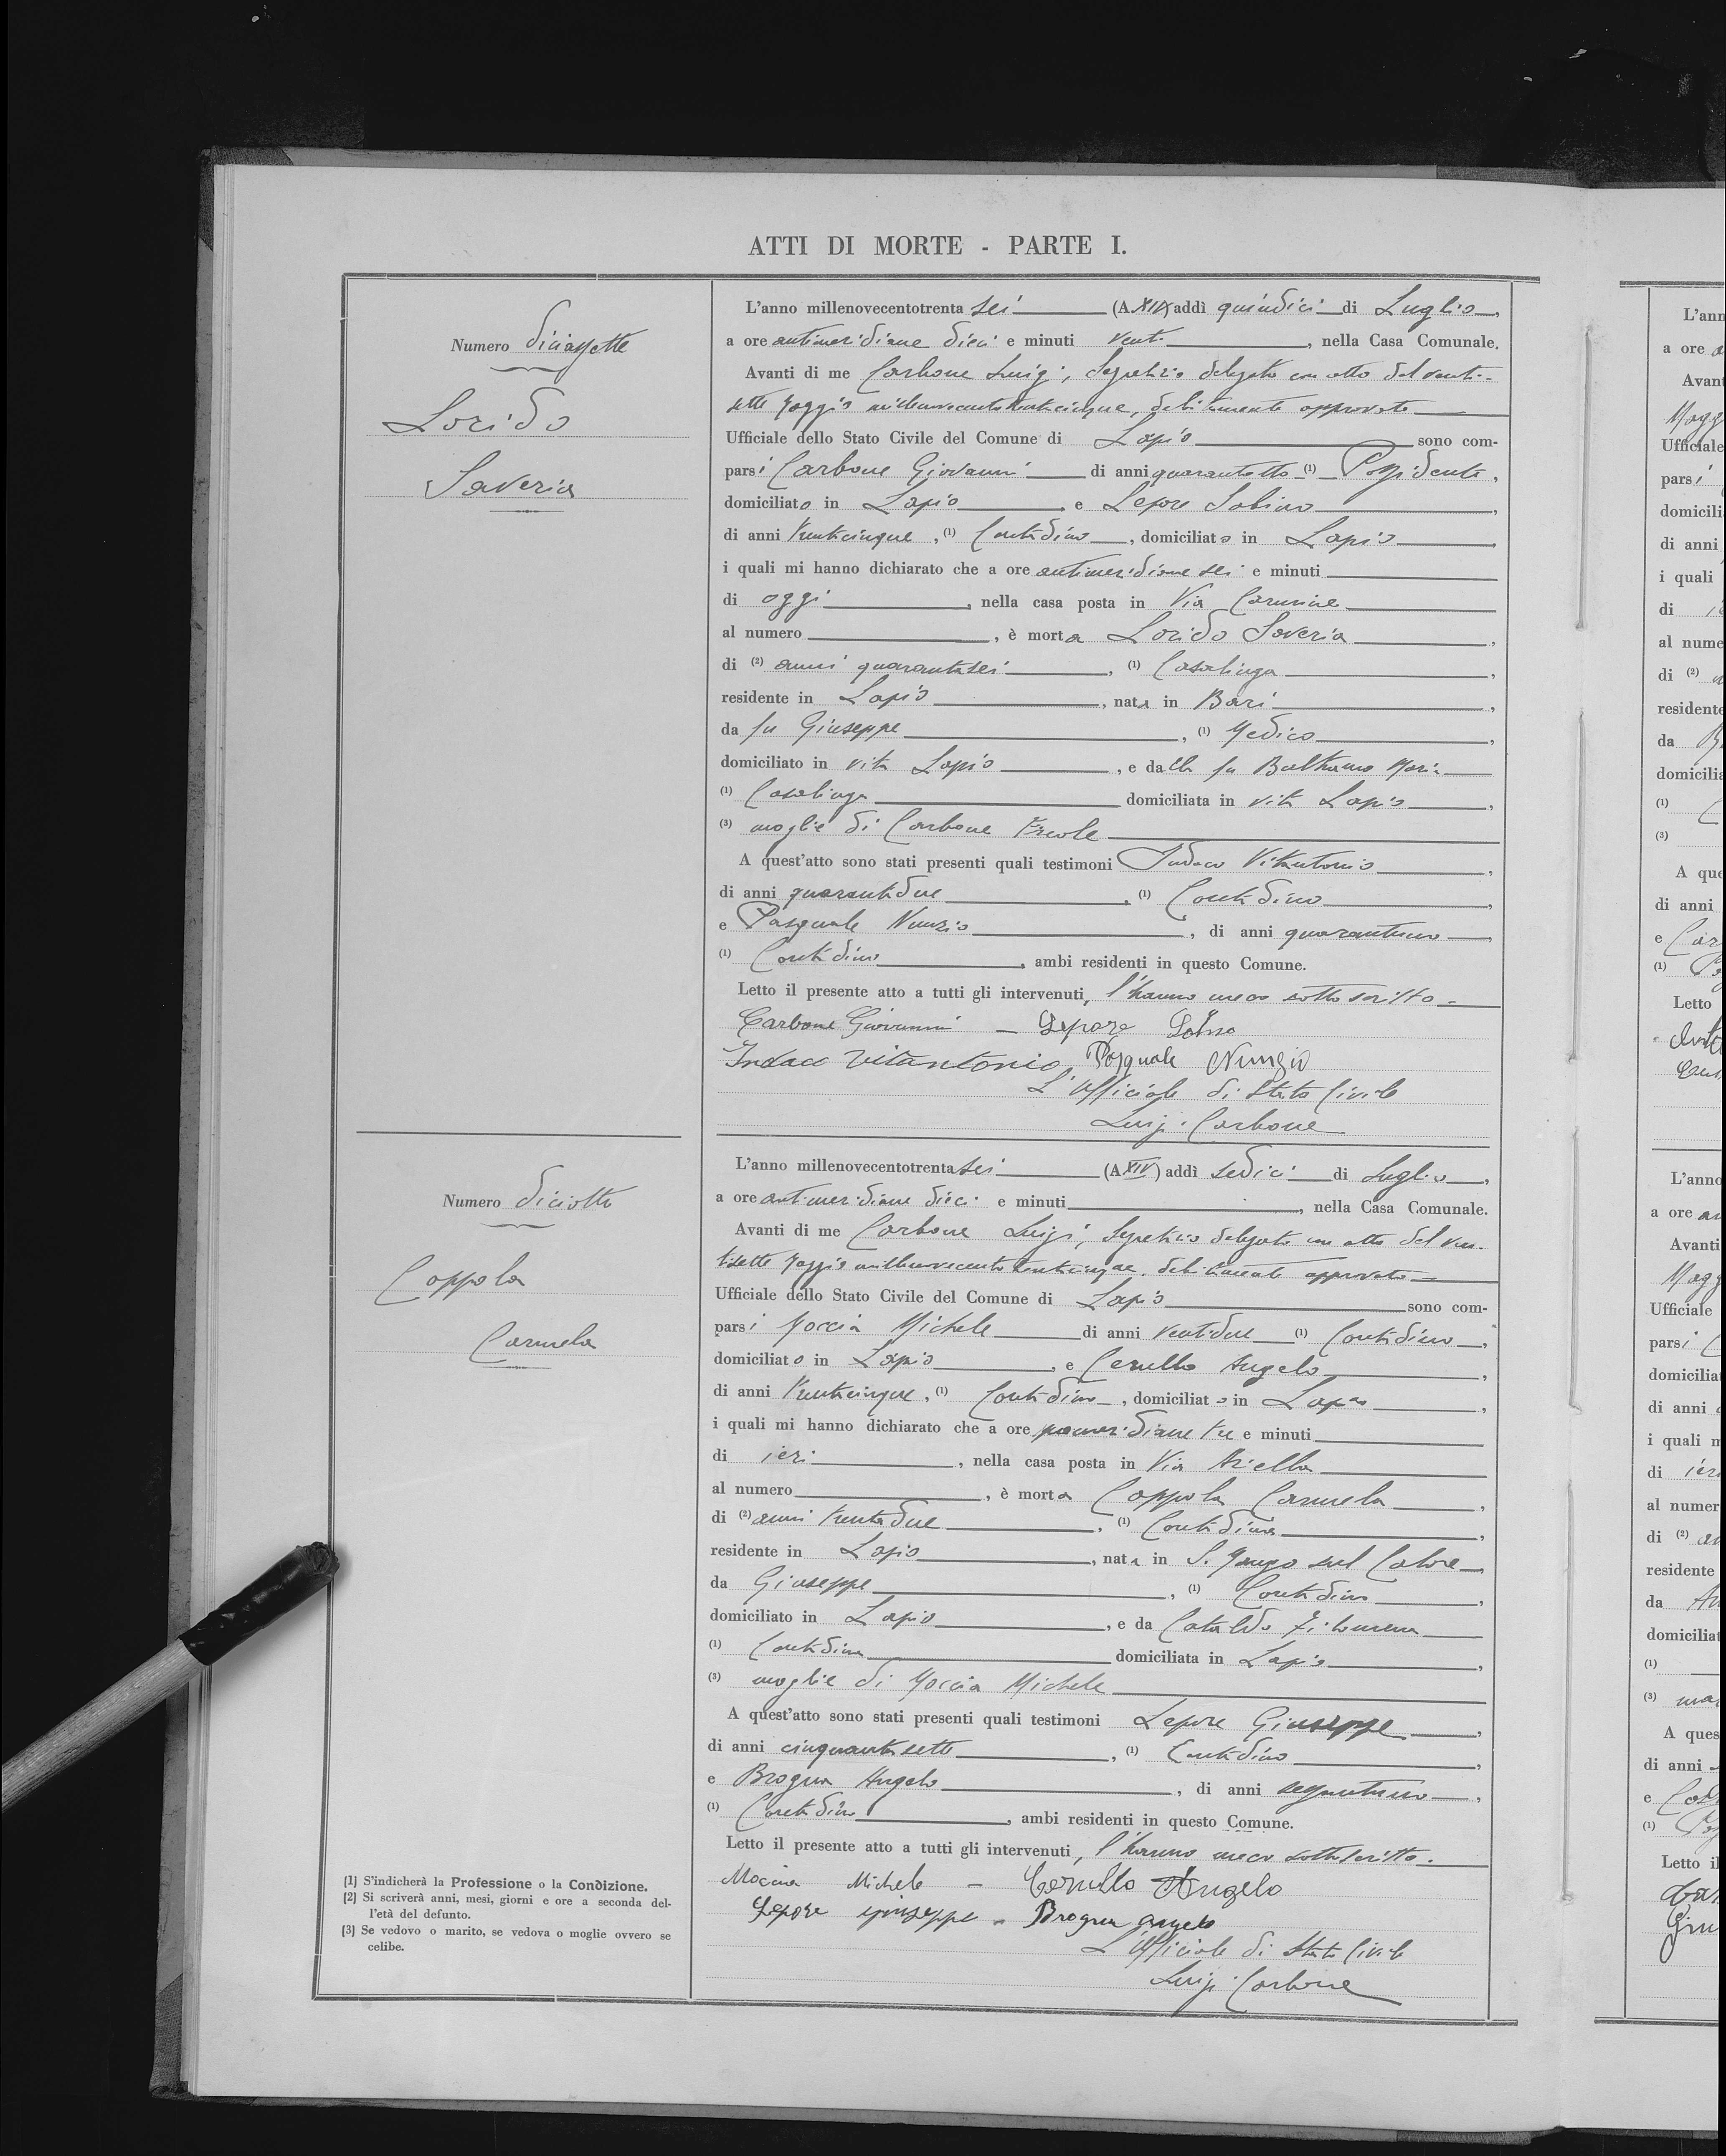 ATTI DI MORTE - PARTE I.
Numero diciassette
Lorido
Saveria
L'anno millenovecentotrenta sei (A. XIV) addì quindici di Luglio,
a ore antimeridiane dieci e minuti venti, nella Casa Comunale.
Avanti di me Carbone Luigi, Segretario delegato con atto del venti-
sette Maggio millenovecentotrentacinque, debitamente approvato
Ufficiale dello Stato Civile del Comune di Lapio sono com-
parsi Carbone Giovanni di anni quarantotto (1) Possidente,
domiciliato in Lapio, e Lepore Sabino,
di anni trentacinque, (1) Contadino, domiciliato in Lapio
i quali mi hanno dichiarato che a ore antimeridiane sei e minuti
di oggi, nella casa posta in Via Carmine
al numero , è morta Lorido Saveria,
di (2) anni quarantasei, (1) Casalinga,
residente in Lapio, nata in Bari,
da fu Giuseppe, (1) Medico,
domiciliato in vita Lapio, e dalla fu Maria
(1) Casalinga domiciliata in vita Lapio,
(3) moglie di Carbone Ercole
A quest'atto sono stati presenti quali testimoni Indaco Vitantonio,
di anni quarantadue, (1) Contadino,
e Pasquale Nunzio, di anni quarantuno,
(1) Contadino, ambi residenti in questo Comune.
Letto il presente atto a tutti gli intervenuti, l'hanno meco sottoscritto -
Carbone Giovanni - Lepore Sabino
Indaco Vitantonio Pasquale Nunzio
L'Ufficiale di Stato Civile
Luigi Carbone
Numero diciotto
Coppola
Carmela
L'anno millenovecentotrentasei (A XIV) addì sedici di Luglio,
a ore antimeridiane dieci e minuti , nella Casa Comunale.
Avanti di me Carbone Luigi, Segretario delegato con atto del ven-
tisette Maggio millenovecentotrentacinque, debitamente approvato
Ufficiale dello Stato Civile del Comune di Lapio sono com-
parsi Moccia Michele di anni ventidue (1) Contadino,
domiciliato in Lapio, e Cerullo Angelo,
di anni trentacinque, (1) Contadino, domiciliato in Lapio,
i quali mi hanno dichiarato che a ore pomeridiane tre e minuti
di ieri, nella casa posta in Via Ariella
al numero , è morta Coppola Carmela,
di (2) anni trentadue, (1) Contadina,
residente in Lapio, nata in S. Mango sul Calore,
da Giuseppe, (1) Contadino,
domiciliato in Lapio, e da Cataldo Filomena
(1) Contadina domiciliata in Lapio,
(3) moglie di Moccia Michele
A quest'atto sono stati presenti quali testimoni Lepore Giuseppe,
di anni cinquantasette, (1) Contadino,
e Brogna Angelo, di anni sessantuno,
(1) Contadino, ambi residenti in questo Comune.
Letto il presente atto a tutti gli intervenuti, l'hanno meco sottoscritto.
Moccia Michele - Cerullo Angelo
Lepore Giuseppe - Brogna Angelo
L'Ufficiale di Stato Civile
Luigi Carbone
[1] S'indicherà la Professione o la Condizione.
[2] Si scriverà anni, mesi, giorni e ore a seconda del-
l'età del defunto.
[3] Se vedovo o marito, se vedova o moglie ovvero se
celibe.